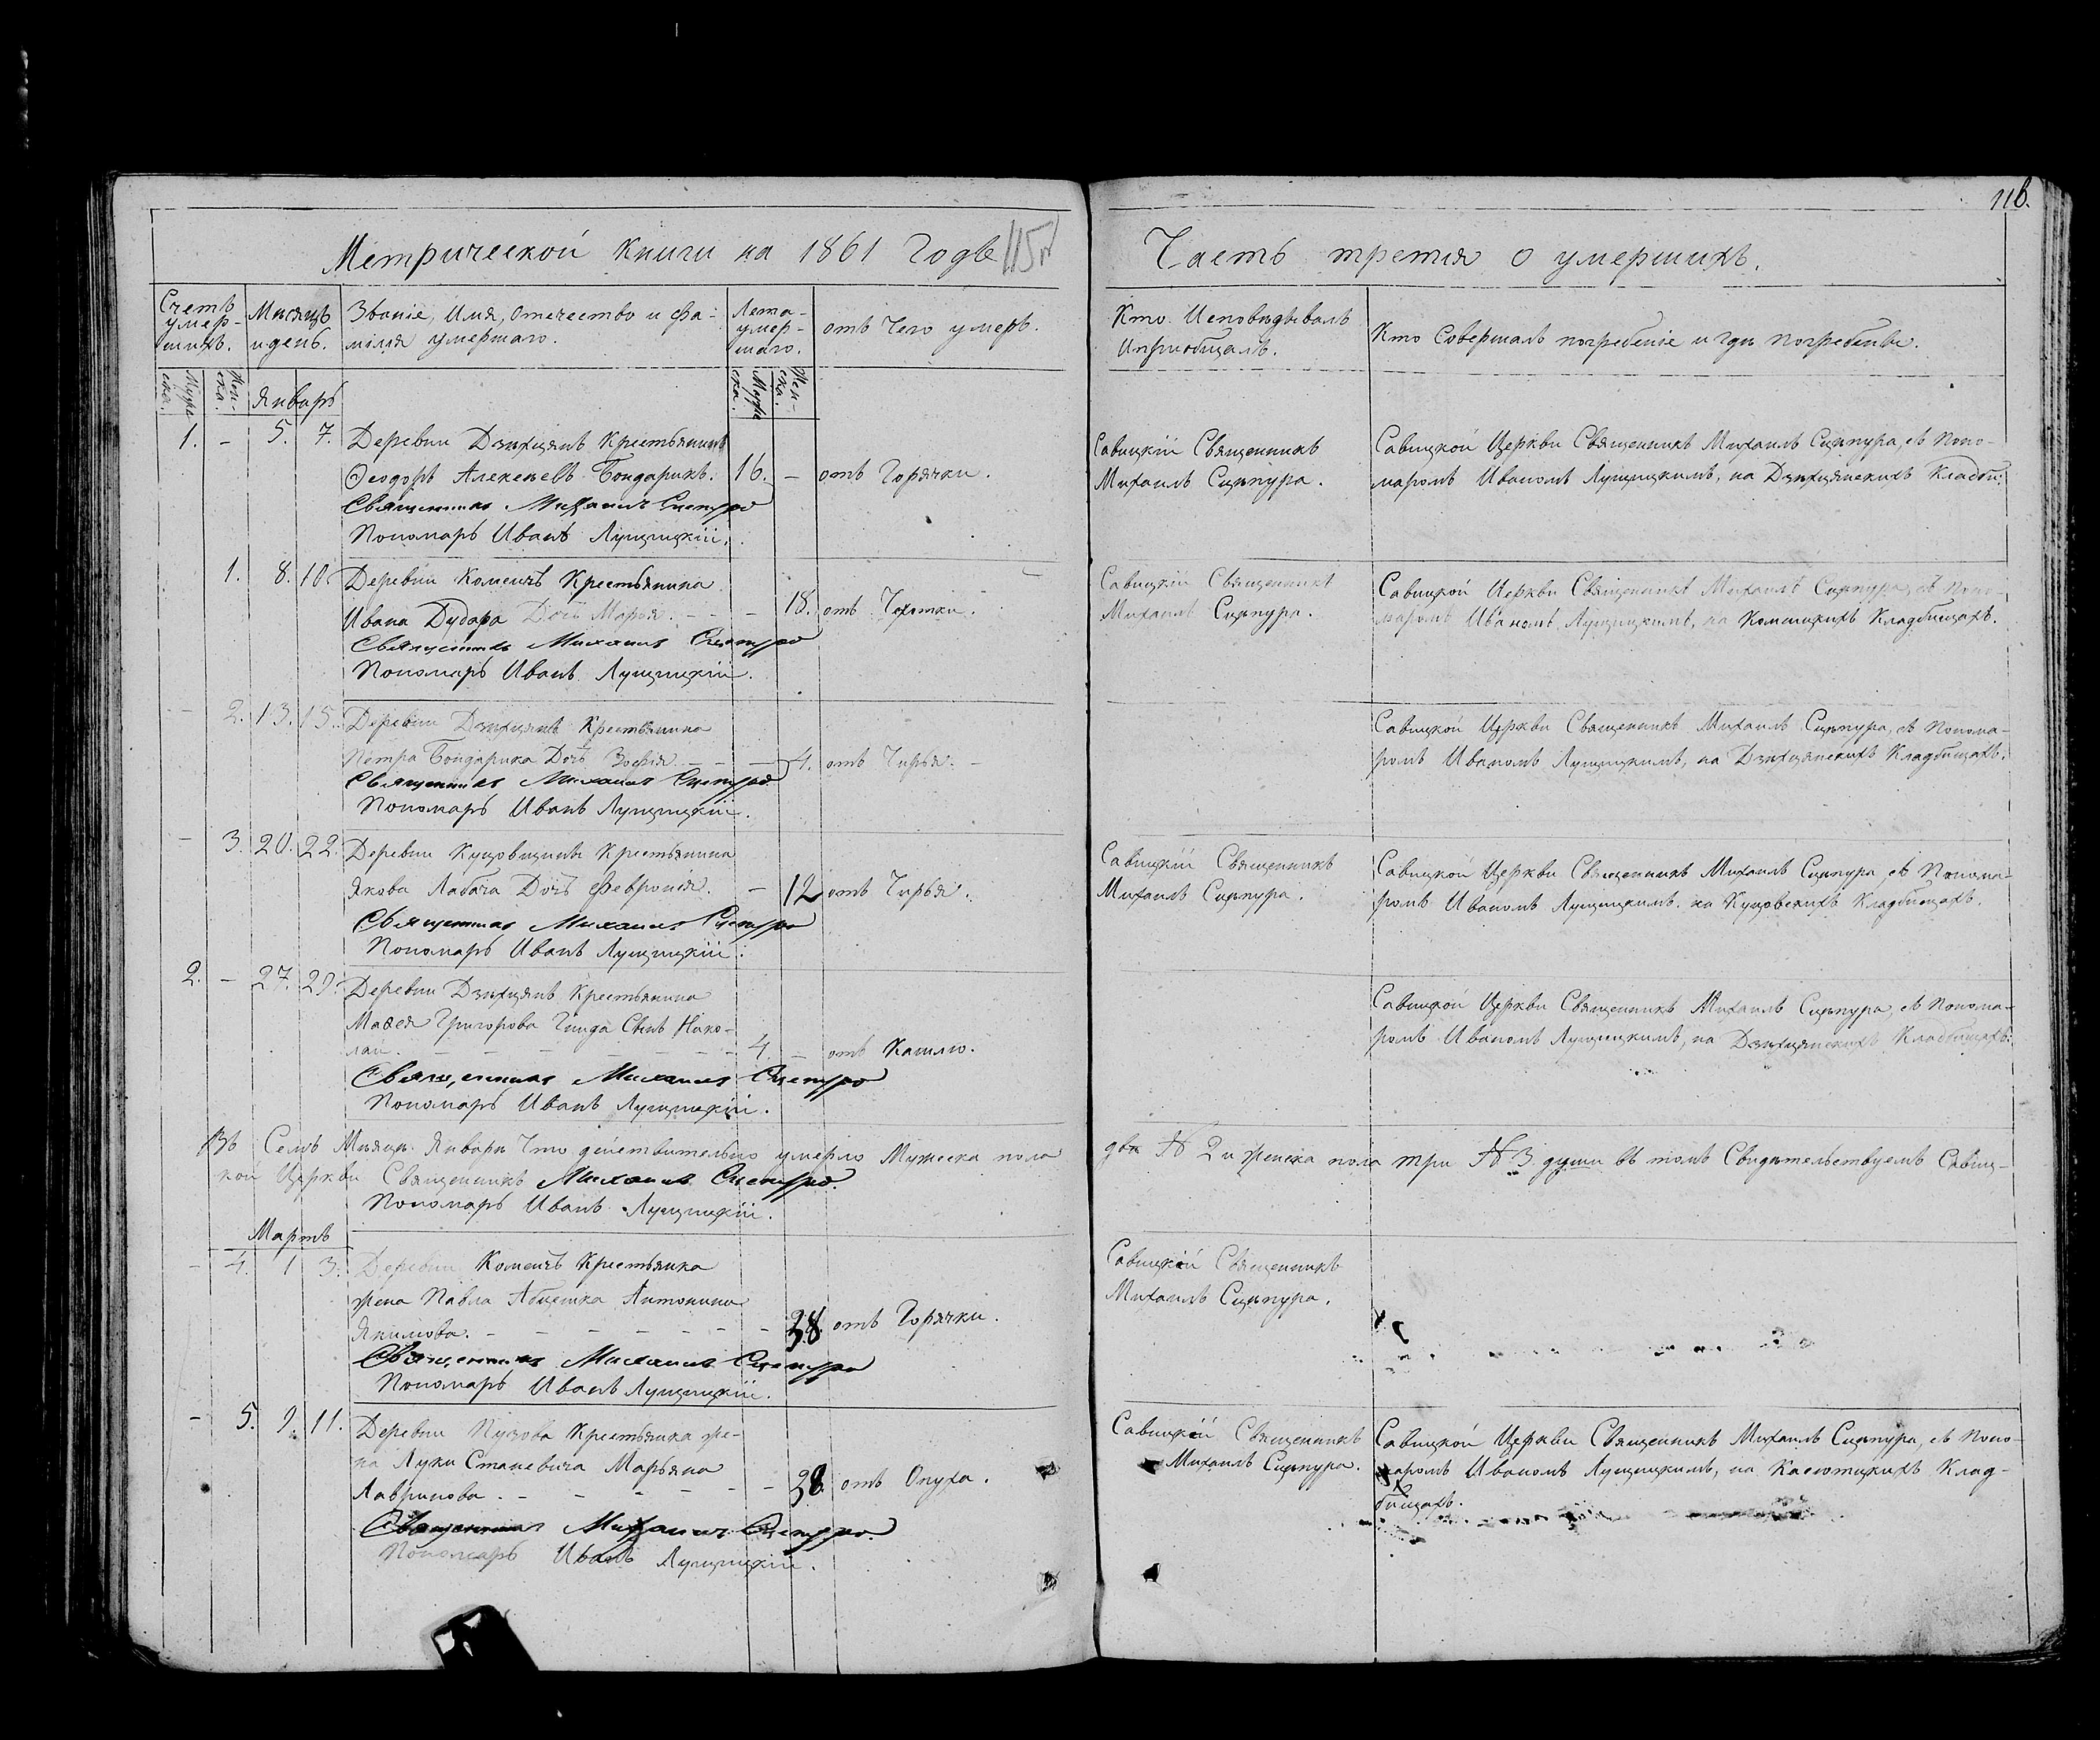 116.
Метрической Книги на 1861 Годъ 115
Часть третія о умершихъ.
Счетъ умер-шихъ.
Мужеска.
Женска.
Мѣсяцъ и день.
Званіе, Имя, Отчество и фа-
милія умершаго.
Лета умер-шаго.
Мужеска.
Женска.
отъ Чего умеръ.
Кто Исповѣдывалъ
и пріобщалъ.
Кто Совершалъ погребеніе и гдѣ погребены.
Январь
1. – 5. 7. Деревни Дзѣхцянъ Крестьянинъ
Ѳеодоръ Алексѣевъ Бондарикъ. 16. – отъ Горячки.
Священникъ Михаилъ
Пономарь Иванъ Лущицкій.
Савицкій Священникъ
Михаилъ Сцѣпура.
Савицкой Церкви Священникъ Михаилъ Сцѣпура, съ Поно-
маромъ Иваномъ Лущицкимъ, на Дзѣхцянскихъ Кладби:
1. 8. 10. Деревни Коменъ Крестьянина
Ивана Дудара Дочь Марья. – – 18. отъ Чахотки.
Священникъ Михаилъ
Пономарь Иванъ Лущицкій.
Савицкій Священникъ
Михаилъ Сцѣпура.
Савицкой Церкви Священникъ Михаилъ Сцѣпура, съ Поно-
маромъ Иваномъ Лущицкимъ, на Кладбищахъ.
– 2. 13. 15. Деревни Дзѣхцянъ Крестьянина
Петра Бондарика Дочь Зофія. – – – 4. отъ Чирья. –
Священникъ Михаилъ
Пономарь Иванъ Лущицкій.
Савицкой Церкви Священникъ Михаилъ Сцѣпура, съ Понома-
ромъ Иваномъ Лущицкимъ, на Дзѣхцянскихъ Кладбищахъ.
– 3. 20. 22. Деревни Куцовщины Крестьянина
Якова Лабача Дочь Февронія. – 12 отъ Чирья.
Священникъ Михаилъ
Пономарь Иванъ Лущицкій.
Савицкій Священникъ
Михаилъ Сцѣпура.
Савицкой Церкви Священникъ Михаилъ Сцѣпура, съ Понома-
ромъ Иваномъ Лущицкимъ. на Куцовскихъ Кладбищахъ.
2. – 27. 29. Деревни Дзѣхцянъ Крестьянина
Маѳея Григорова Гинда Сынъ Нико-
лай. – – – – – – – 4. – отъ Кашлю.
Священникъ Михаилъ
Пономарь Иванъ Лущицкій.
Савицкой Церкви Священникъ Михаилъ Сцѣпура, съ Понома-
ромъ Иваномъ Лущицкимъ, на Дзѣхцянскихъ Кладбищахъ.
Въ Семъ Мѣсяцѣ Январѣ Что дѣйствительно умерло Мужеска пола два № 2 и женска пола три № 3 души въ томъ Свидѣтельствуемъ Савиц-
кой Церкви Священникъ Михаилъ
Пономарь Иванъ Лущицкій.
Мартъ
– 4. 1 3. Деревни Коменъ Крестьянка
жена Павла Антонина
Якимова. – – – – – – – 38. отъ Горячки.
Священникъ Михаилъ
Пономарь Иванъ Лущицкій.
Савицкій Священникъ
Михаилъ Сцѣпура.
– 5. 9. 11. Деревни Пузова Крестьянка же-
на Луки Станевича Марьяна
Лавринова. – – – – – – 38. отъ Опуха.
Священникъ Михаилъ
Пономарь Иванъ Лущицкій.
Савицкій Священникъ
Михаилъ Сцѣпура.
Савицкой Церкви Священникъ Михаилъ Сцѣпура, съ Поно-
маромъ Иваномъ Лущицкимъ, на Клад-
бищахъ.